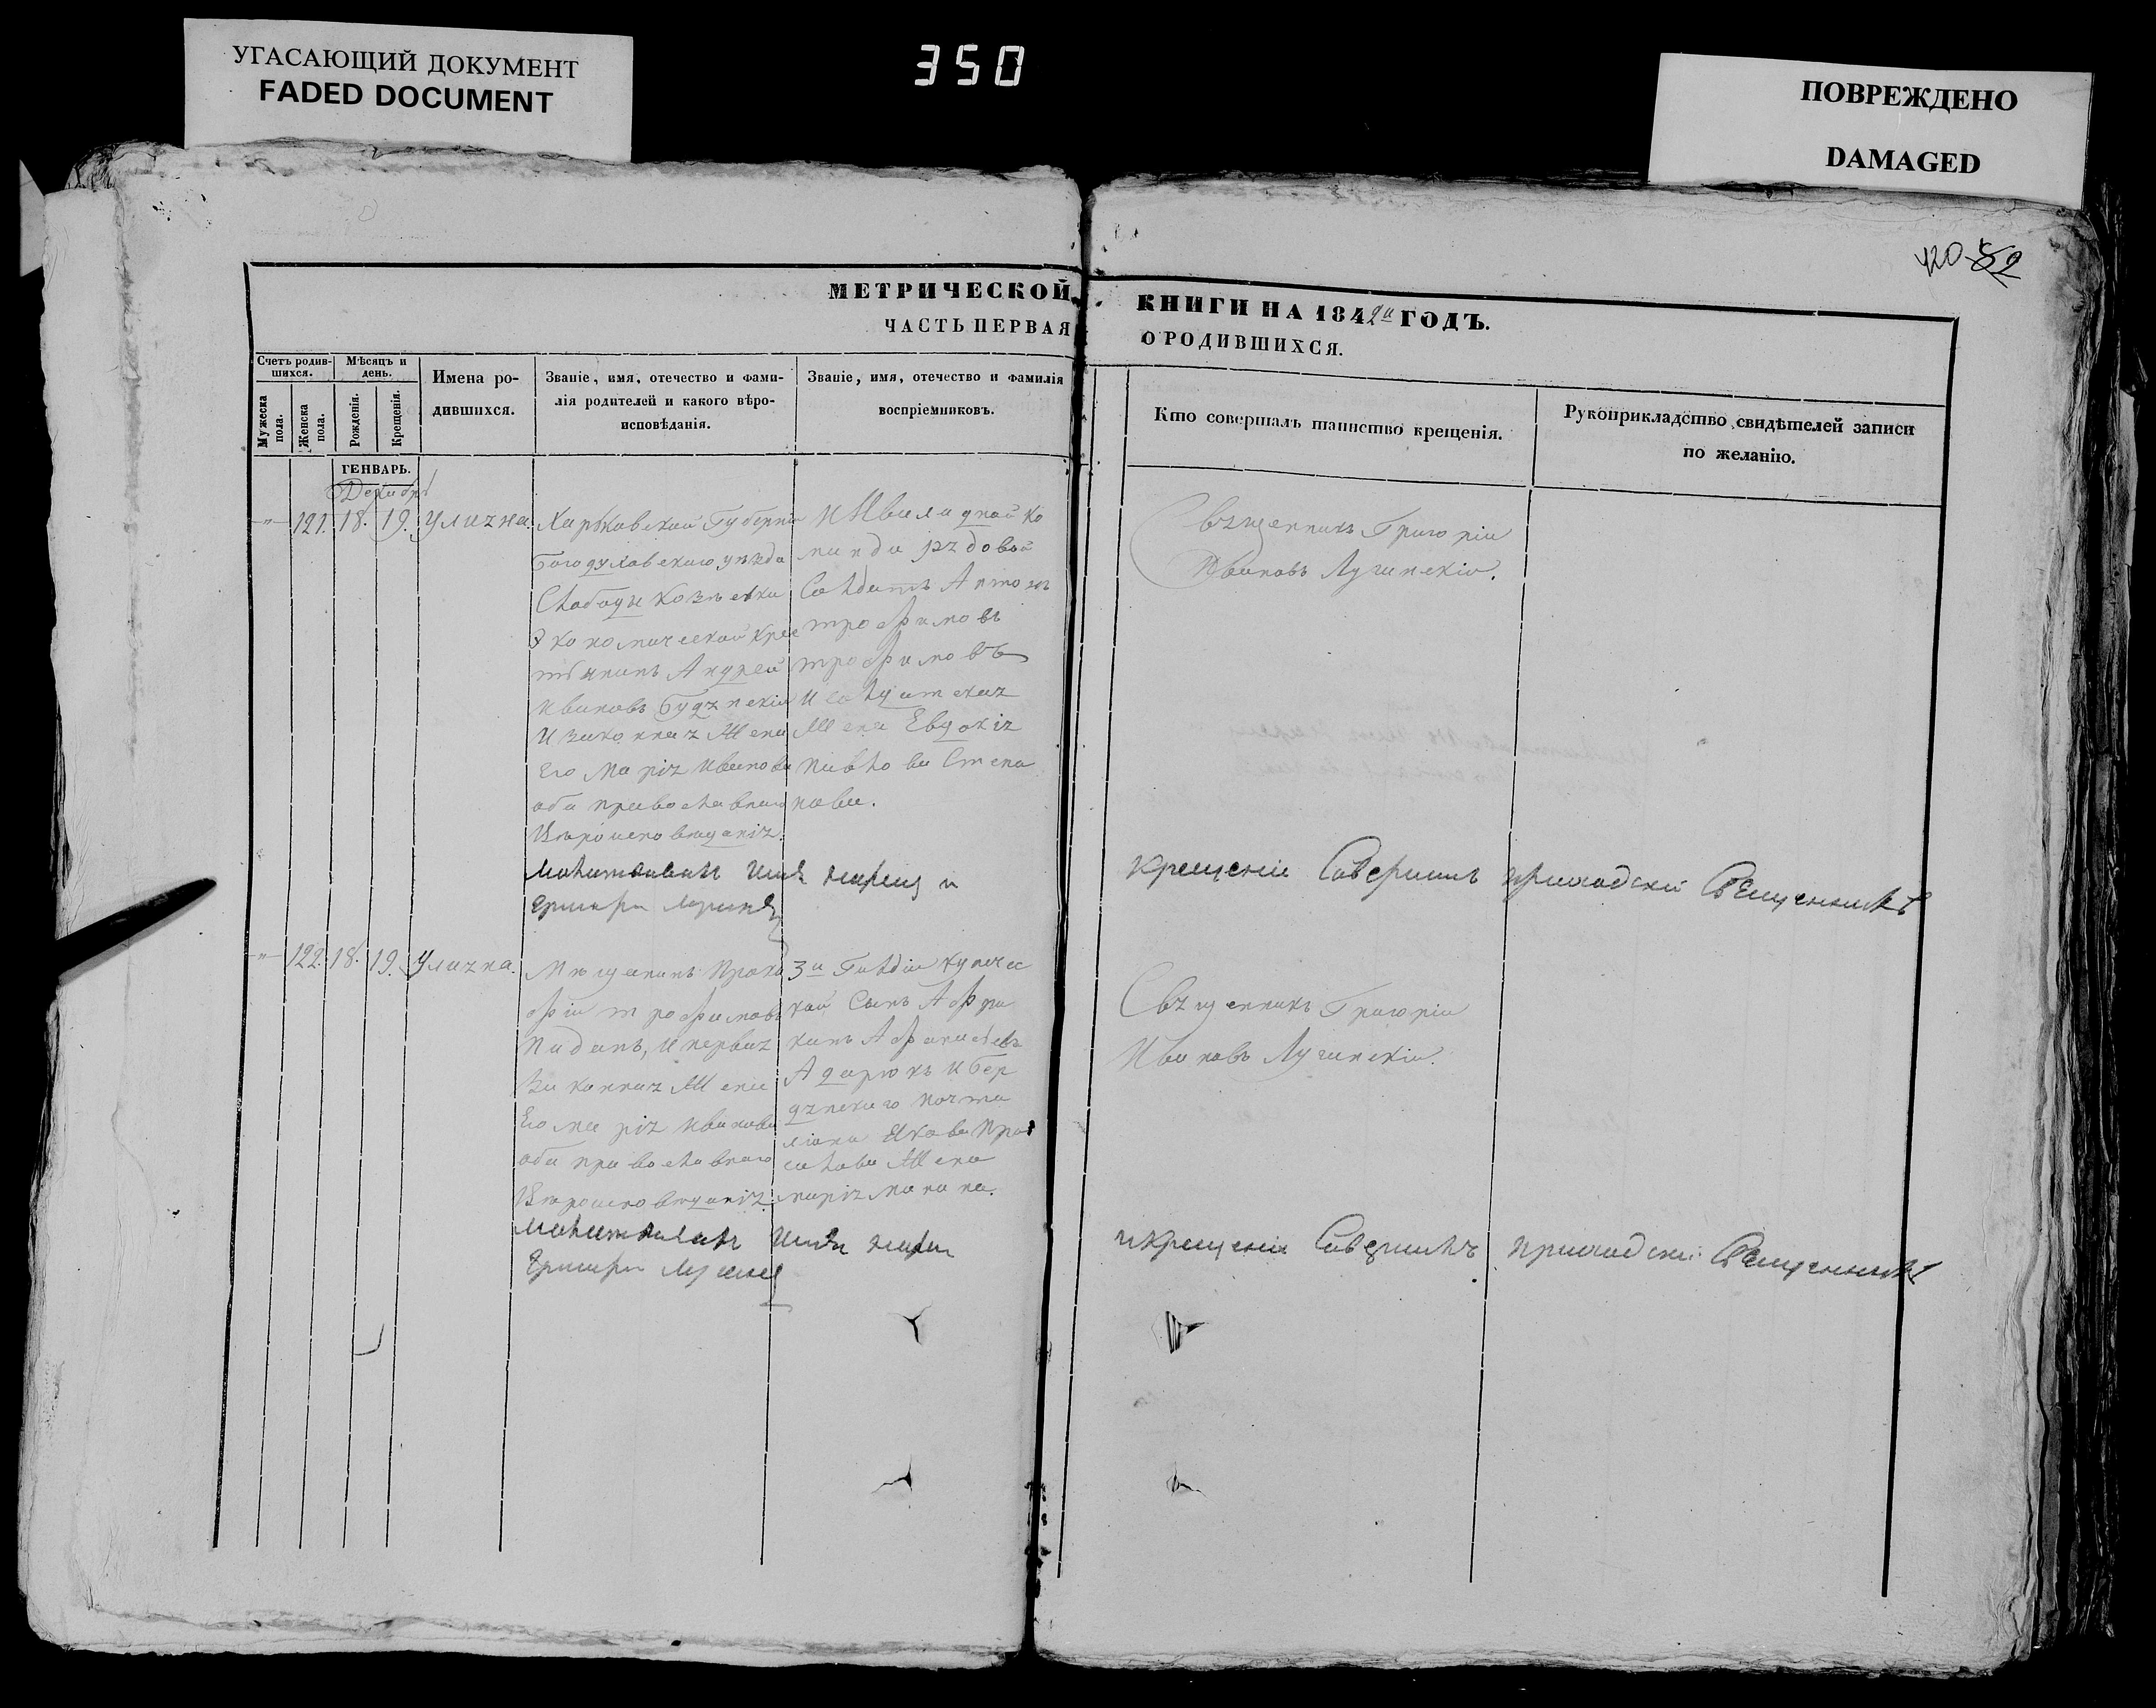 УГАСАЮЩИЙ ДОКУМЕНТ
FADED DOCUMENT
350
ПОВРЕЖДЕНО
DAMAGED
МЕТРИЧЕСКОЙ КНИГИ НА 1842й ГОДЪ.
ЧАСТЬ ПЕРВАЯ О РОДИВШИХСЯ.
Счетъ родив-
шихся.
Мужеска
пола.
Женска
пола.
Мѣсяцъ и
день.
Рожденія.
Крещенія.
Имена ро-
дившихся.
Званіе, имя, отечество и фами-
лія родителей и какого вѣро-
исповѣданія.
Званіе, имя, отечество и фамилія
воспріемниковъ.
Кто совершалъ таинство крещенія.
Рукоприкладство свидѣтелей записи
по желанію.
ГЕНВАРЬ.
Декабрь
121. 18. 19. Улияна.
Харьковской Губерніи
Богодуховскаго уѣзда
Слабоды
Экономическай крес
тьянинъ Андрей
Ивановъ
И законная Жена
Его Марія Иванова
оба православнаго
Вѣроисповѣданія.
Инвалиднай ко
манды рядовой
Салдатъ Антонъ
трофимовъ
трофимовъ
И салдатская
Жена Евдокія
Павлова Степа
нова.
Священникъ Григорій
Ивановъ Лучинскій.
Молитвовалъ Имя нарещи и
крещеніе Совершилъ приходскій Священникъ
122. 18. 19. Улияна.
Мѣщанинъ Проко
фій трофимовъ
, И первая
Законная Жена
Его Марія Иванова
оба православнаго
Вѣроисповѣданія.
3й Гилдіи купечес
кай Сынъ
Афанасіевъ
И Бер
дянскаго почта
ліона Якова
Жена
марія
Священникъ Григорій
Ивановъ Лучинскій.
Молитвовалъ Имя нарещи
и крещеніе Совершилъ приходскій Священникъ